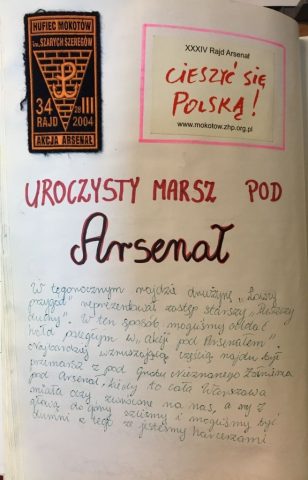 HUFIEC MOKOTÓW
im. SZARYCH SZEREGÓW
34 28 III
RAJD 2004
AKCJA ARSENAŁ
XXXIV Rajd Arsenał
CIESZYĆ SIĘ
POLSKĄ!
www.mokotow.zhp.org.pl
UROCZYSTY MARSZ POD
Arsenał
W tegorocznym rajdzie drużynę „Łowcy
przygód" reprezentował zastęp starszy
duchy". W ten sposób mogliśmy oddać
hołd poległym w „akcji pod Arsenałem".
Najbardziej wzruszającą częścią rajdu był
przemarsz z pod Grobu Nieznanego Żołnierza
pod Arsenał, kiedy to cała Warszawa
miała oczy zwrócone na nas, a my z
głową do góry szliśmy i mogliśmy być
dumni z tego że jesteśmy harcerzami